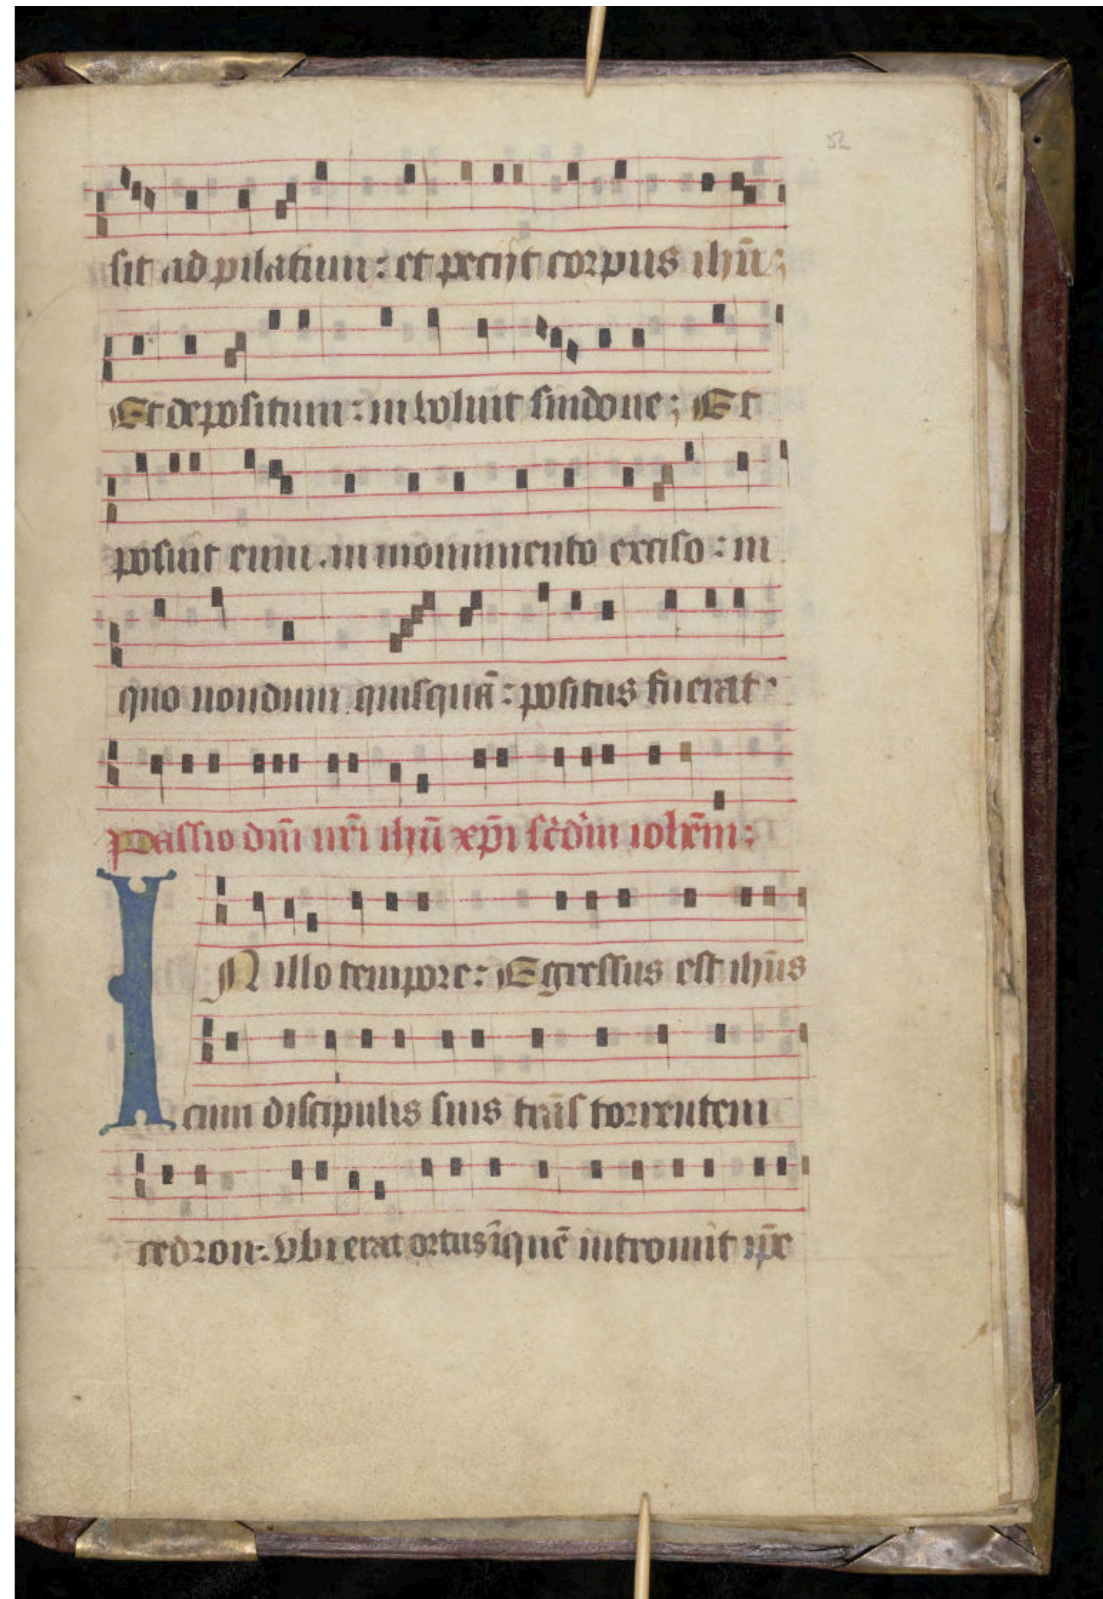 52
sit ad pilatum : et pecijt corpus ihū ;
Et depositum : in voluit sindone ; Et
posuit eum . in monumento exciso : in
quo nondum quisquā : positus fuerat .
Passio dn̄i nr̄i ihū xp̄i scd̄m ioh̄em ;
IN illo tempore : Egressus est ihūs
cum discipulis suis trās torrentem
cedron : vbi erat ortus ī quē introiuit ip̄e